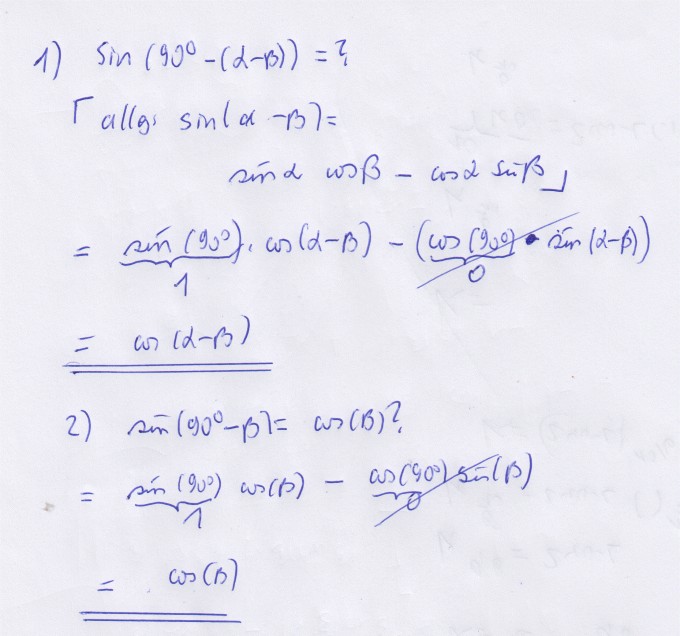 1) sin (90° - (α-β)) = ?
⌈ allg. sin(α - β) =
sin α cos β - cos α sin β ⌋
= sin (90°) · cos (α-β) - (cos (90°) · sin (α-β))
1 0
= cos (α-β)
2) sin (90° - β) = cos (β) ?
= sin (90°) cos (β) - cos (90°) sin (β)
1 0
= cos (β)